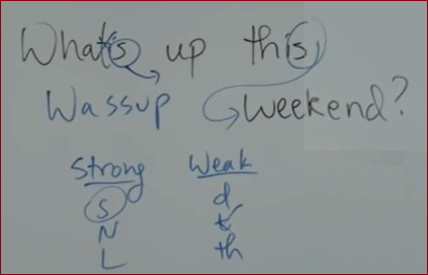 What's up this
Wassup weekend?
Strong Weak
S d
N t
L th